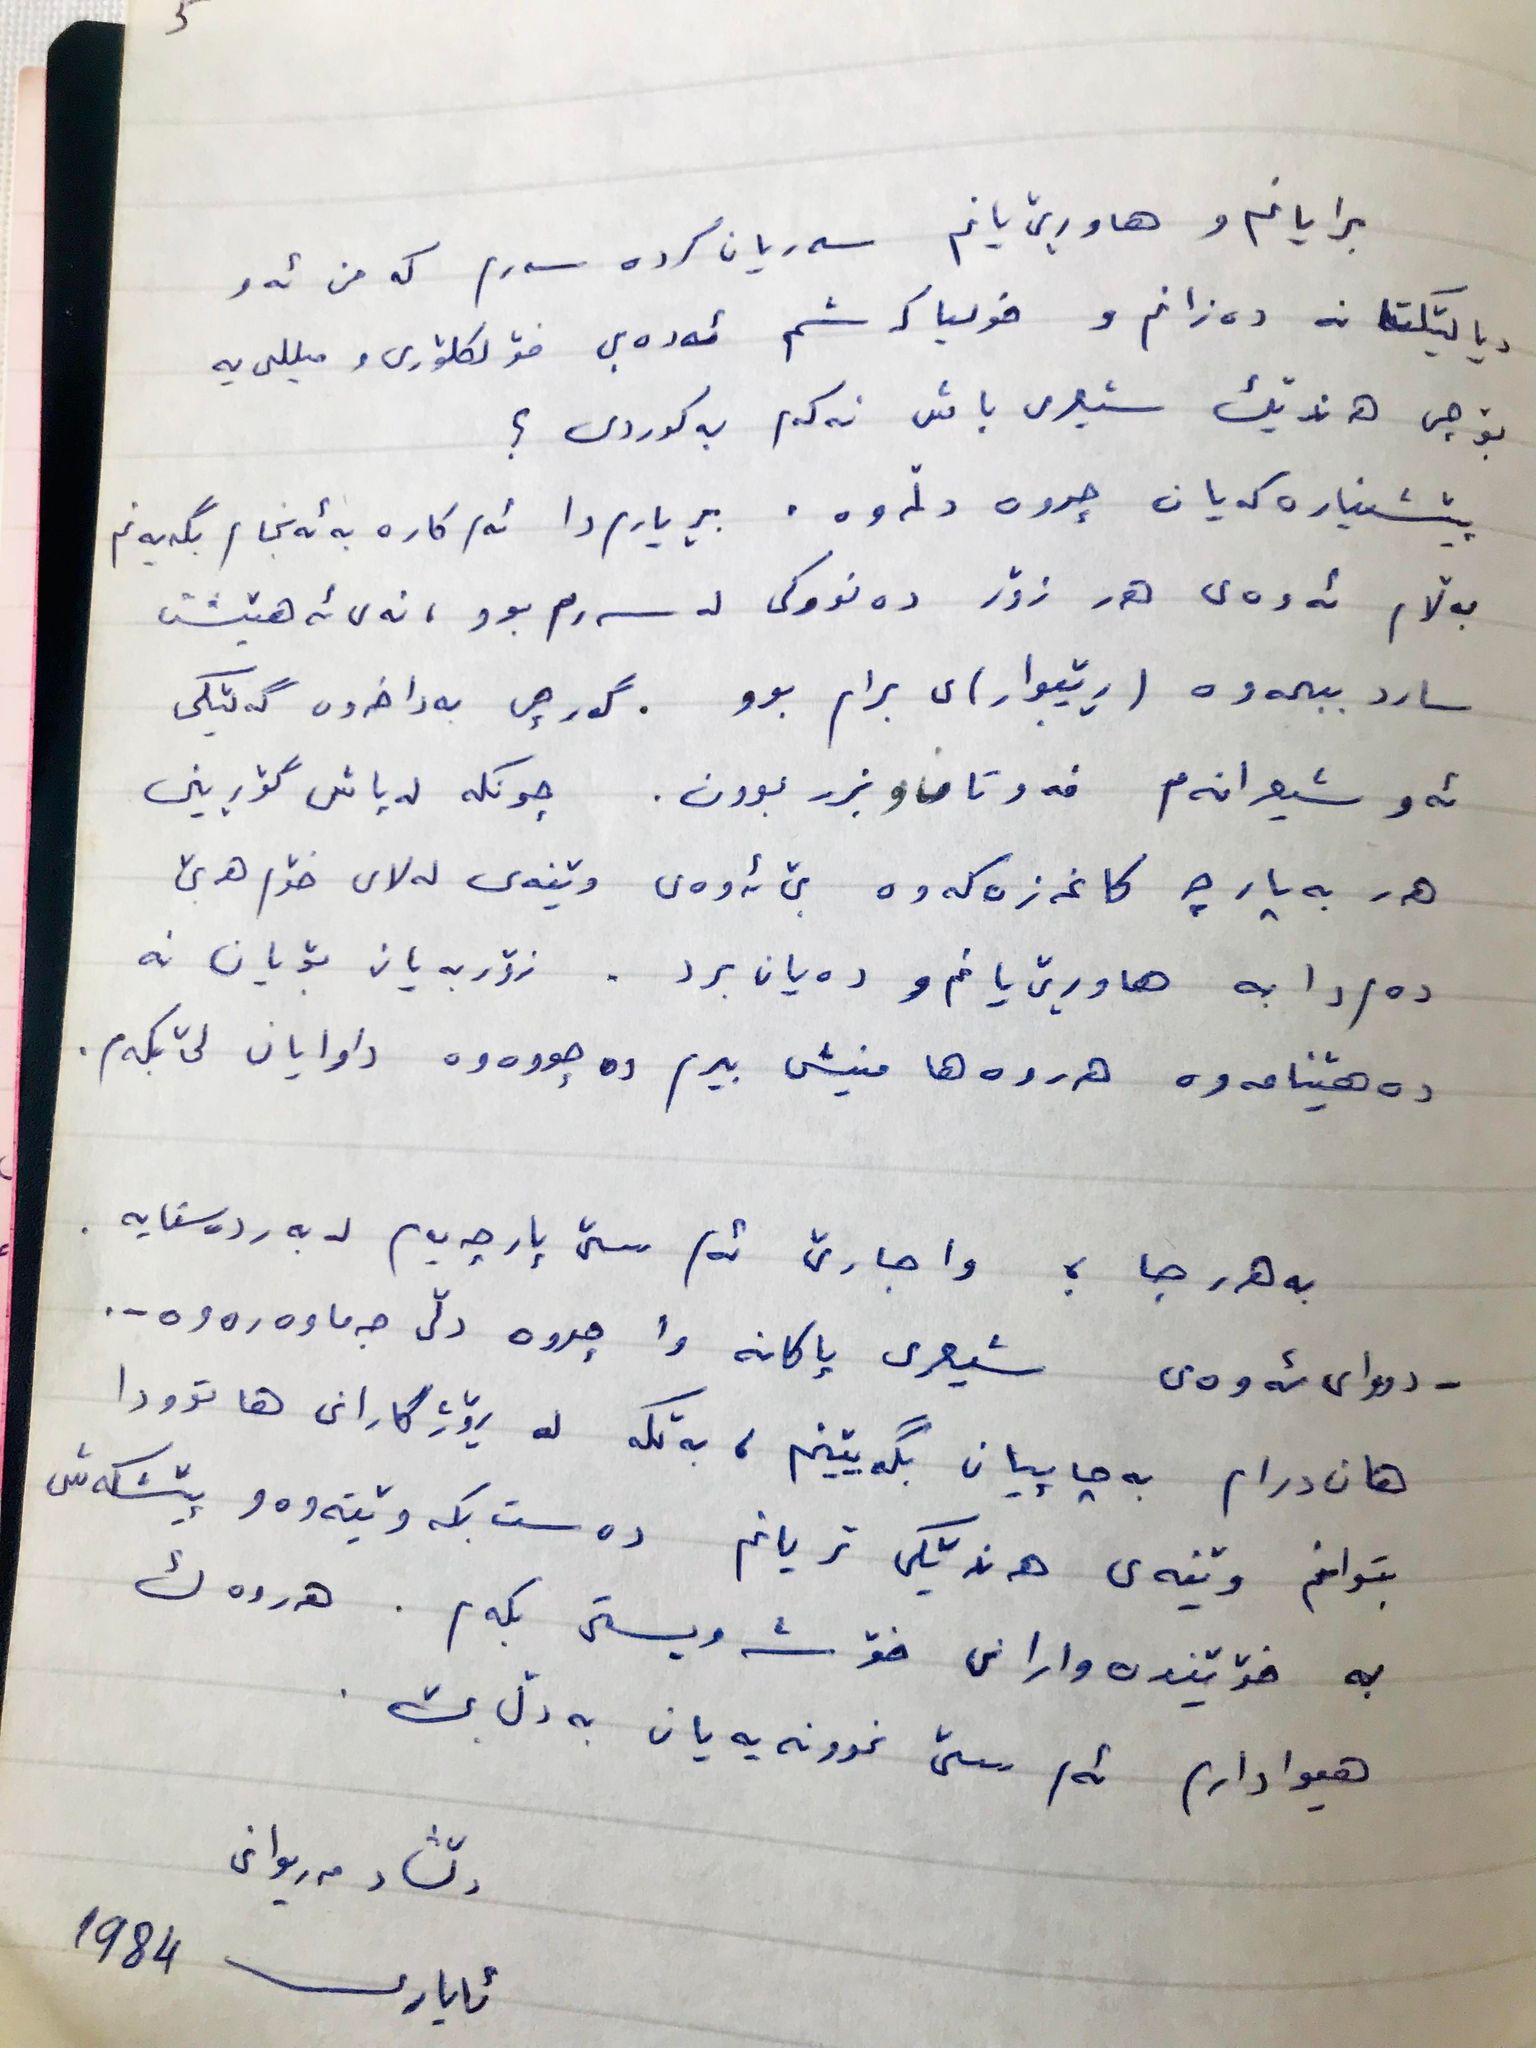 5
برایانم و هاورێ یانم سەریان کردە سەرم کە من ئەو
دیالێکتانە دەزانم و خولیاکەشم ئەدەبی فۆلکلۆری و میللی یە
بۆچی هەندێک شیعری باش نەکەم بەکوردی ؟
پێشنیارەکەیان چووە دڵەوە . بڕیارم دا ئەم کارە بەئەنجام بگەیەنم
بەڵام ئەوەی هەر زۆر دەنووکی لە سەرم بوو ، نەی ئەهێشت
سارد ببمەوە (ڕێبوار)ی برام بوو . گەرچی بەداخەوە گەلێکی
ئەو شیعرانەم فەوتان و بزر بوون . چونکە لەپاش گۆڕینی
هەر بەپارچە کاغەزەکەوە بێ ئەوەی وێنەی لەلای خۆم هەبێ
دەم دا بە هاورێ یانم و دەیان برد . زۆربەیان بۆیان نە
دەهێنامەوە هەروەها منیش بیرم دەچووەوە داوایان لێ بکەم .
بەهەر حاڵ ، وا جارێ ئەم سێ پارچەیەم لەبەردەستایە .
- دووای ئەوەی شیعری پاکانە وا چووە دڵی جەماوەرەوە - .
هان درام بەچاپیان بگەیێنم ، بەڵکە لە ڕۆژگارانی هاتوودا
بتوانم وێنەی هەندێکی تریانم دەست بکەوێتەوە و پێشکەش
بە خوێندەوارانی خۆشەویستی بکەم . هەروەک
هیوادارم ئەم سێ نموونەیەیان بەدڵ بێت .
دڵشاد مەریوانی
ئایاری 1984